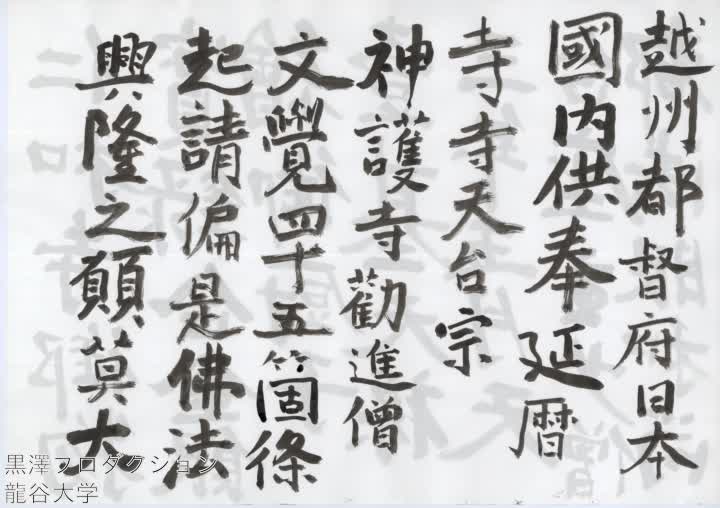 越州都督府日本
國内供奉延暦
寺寺天台宗
神護寺勸進僧
文覺四十五箇條
起請偏是佛法
興隆之願莫大
黒澤プロダクション
龍谷大学